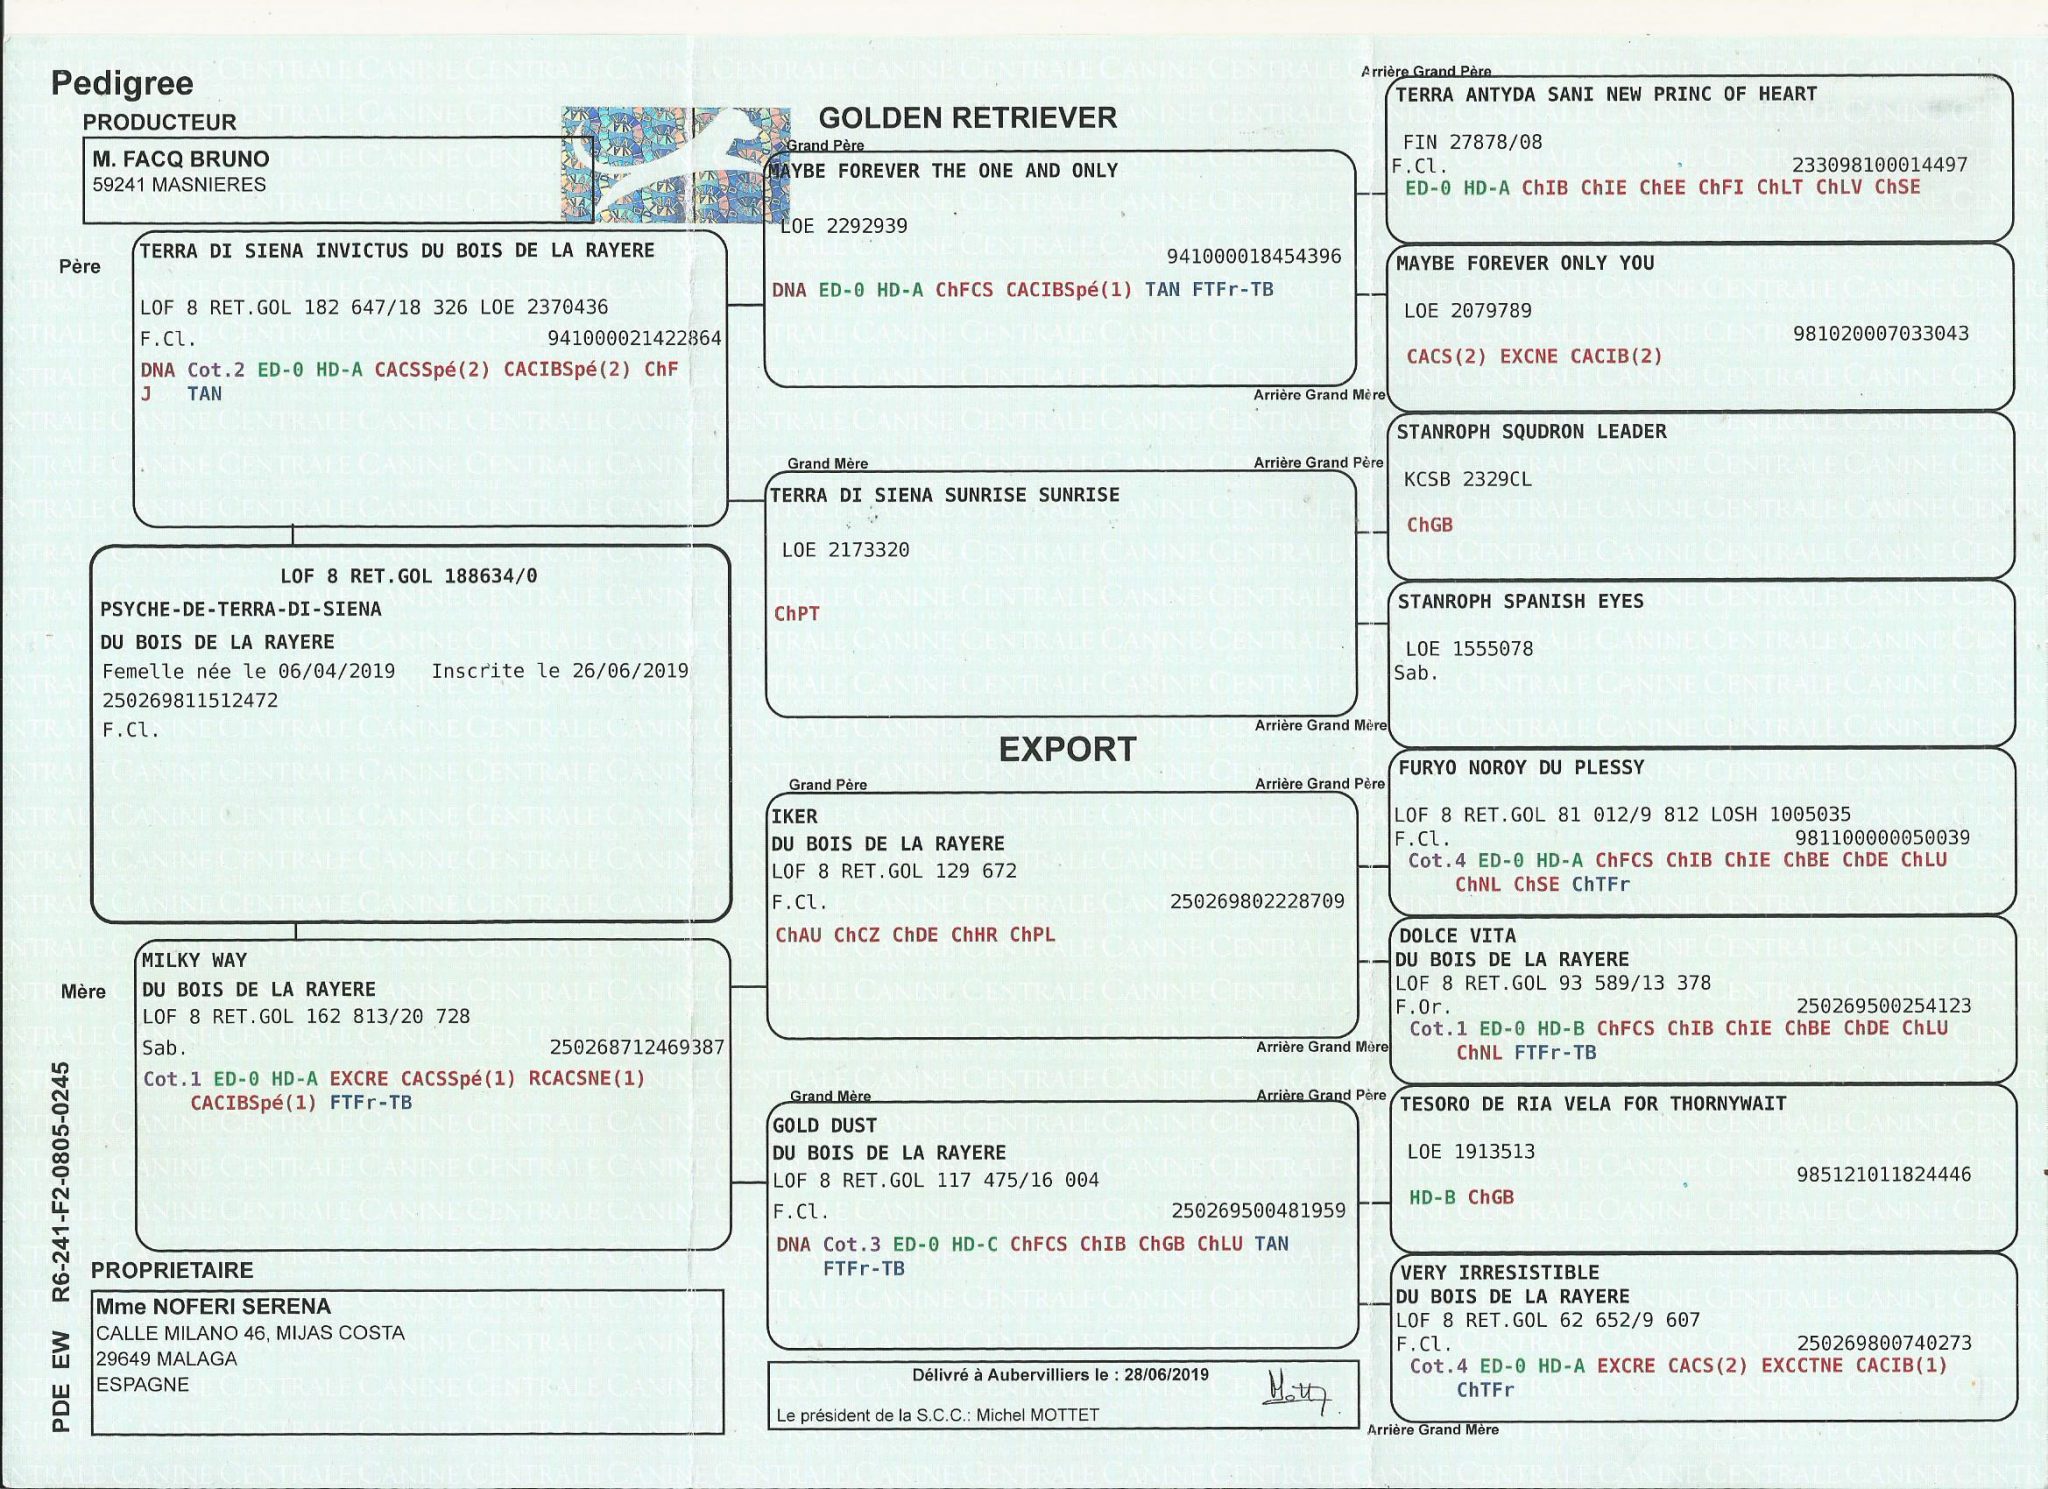 Pedigree
PRODUCTEUR
M. FACQ BRUNO
59241 MASNIERES
GOLDEN RETRIEVER
Père
TERRA DI SIENA INVICTUS DU BOIS DE LA RAYERE
LOF 8 RET.GOL 182 647/18 326 LOE 2370436
F.Cl. 941000021422864
DNA Cot.2 ED-0 HD-A CACSSpé(2) CACIBSpé(2) ChF
J TAN
LOF 8 RET.GOL 188634/0
PSYCHE-DE-TERRA-DI-SIENA
DU BOIS DE LA RAYERE
Femelle née le 06/04/2019 Inscrite le 26/06/2019
250269811512472
F.Cl.
Mère
MILKY WAY
DU BOIS DE LA RAYERE
LOF 8 RET.GOL 162 813/20 728
Sab. 250268712469387
Cot.1 ED-0 HD-A EXCRE CACSSpé(1) RCACSNE(1)
CACIBSpé(1) FTFr-TB
PROPRIETAIRE
Mme NOFERI SERENA
CALLE MILANO 46, MIJAS COSTA
29649 MALAGA
ESPAGNE
PDE EW R6-241-F2-0805-0245
Grand Père
MAYBE FOREVER THE ONE AND ONLY
LOE 2292939
941000018454396
DNA ED-0 HD-A ChFCS CACIBSpé(1) TAN FTFr-TB
Grand Mère
TERRA DI SIENA SUNRISE SUNRISE
LOE 2173320
ChPT
EXPORT
Grand Père
IKER
DU BOIS DE LA RAYERE
LOF 8 RET.GOL 129 672
F.Cl. 250269802228709
ChAU ChCZ ChDE ChHR ChPL
Grand Mère
GOLD DUST
DU BOIS DE LA RAYERE
LOF 8 RET.GOL 117 475/16 004
F.Cl. 250269500481959
DNA Cot.3 ED-0 HD-C ChFCS ChIB ChGB ChLU TAN
FTFr-TB
Délivré à Aubervilliers le : 28/06/2019
Le président de la S.C.C.: Michel MOTTET
Arrière Grand Père
TERRA ANTYDA SANI NEW PRINC OF HEART
FIN 27878/08
F.Cl. 233098100014497
ED-0 HD-A ChIB ChIE ChEE ChFI ChLT ChLV ChSE
MAYBE FOREVER ONLY YOU
LOE 2079789
981020007033043
CACS(2) EXCNE CACIB(2)
Arrière Grand Mère
Arrière Grand Père
STANROPH SQUDRON LEADER
KCSB 2329CL
ChGB
STANROPH SPANISH EYES
LOE 1555078
Sab.
Arrière Grand Mère
Arrière Grand Père
FURYO NOROY DU PLESSY
LOF 8 RET.GOL 81 012/9 812 LOSH 1005035
F.Cl. 981100000050039
Cot.4 ED-0 HD-A ChFCS ChIB ChIE ChBE ChDE ChLU
ChNL ChSE ChTFr
DOLCE VITA
DU BOIS DE LA RAYERE
LOF 8 RET.GOL 93 589/13 378
F.Or. 250269500254123
Cot.1 ED-0 HD-B ChFCS ChIB ChIE ChBE ChDE ChLU
ChNL FTFr-TB
Arrière Grand Mère
Arrière Grand Père
TESORO DE RIA VELA FOR THORNYWAIT
LOE 1913513
985121011824446
HD-B ChGB
VERY IRRESISTIBLE
DU BOIS DE LA RAYERE
LOF 8 RET.GOL 62 652/9 607
F.Cl. 250269800740273
Cot.4 ED-0 HD-A EXCRE CACS(2) EXCCTNE CACIB(1)
ChTFr
Arrière Grand Mère